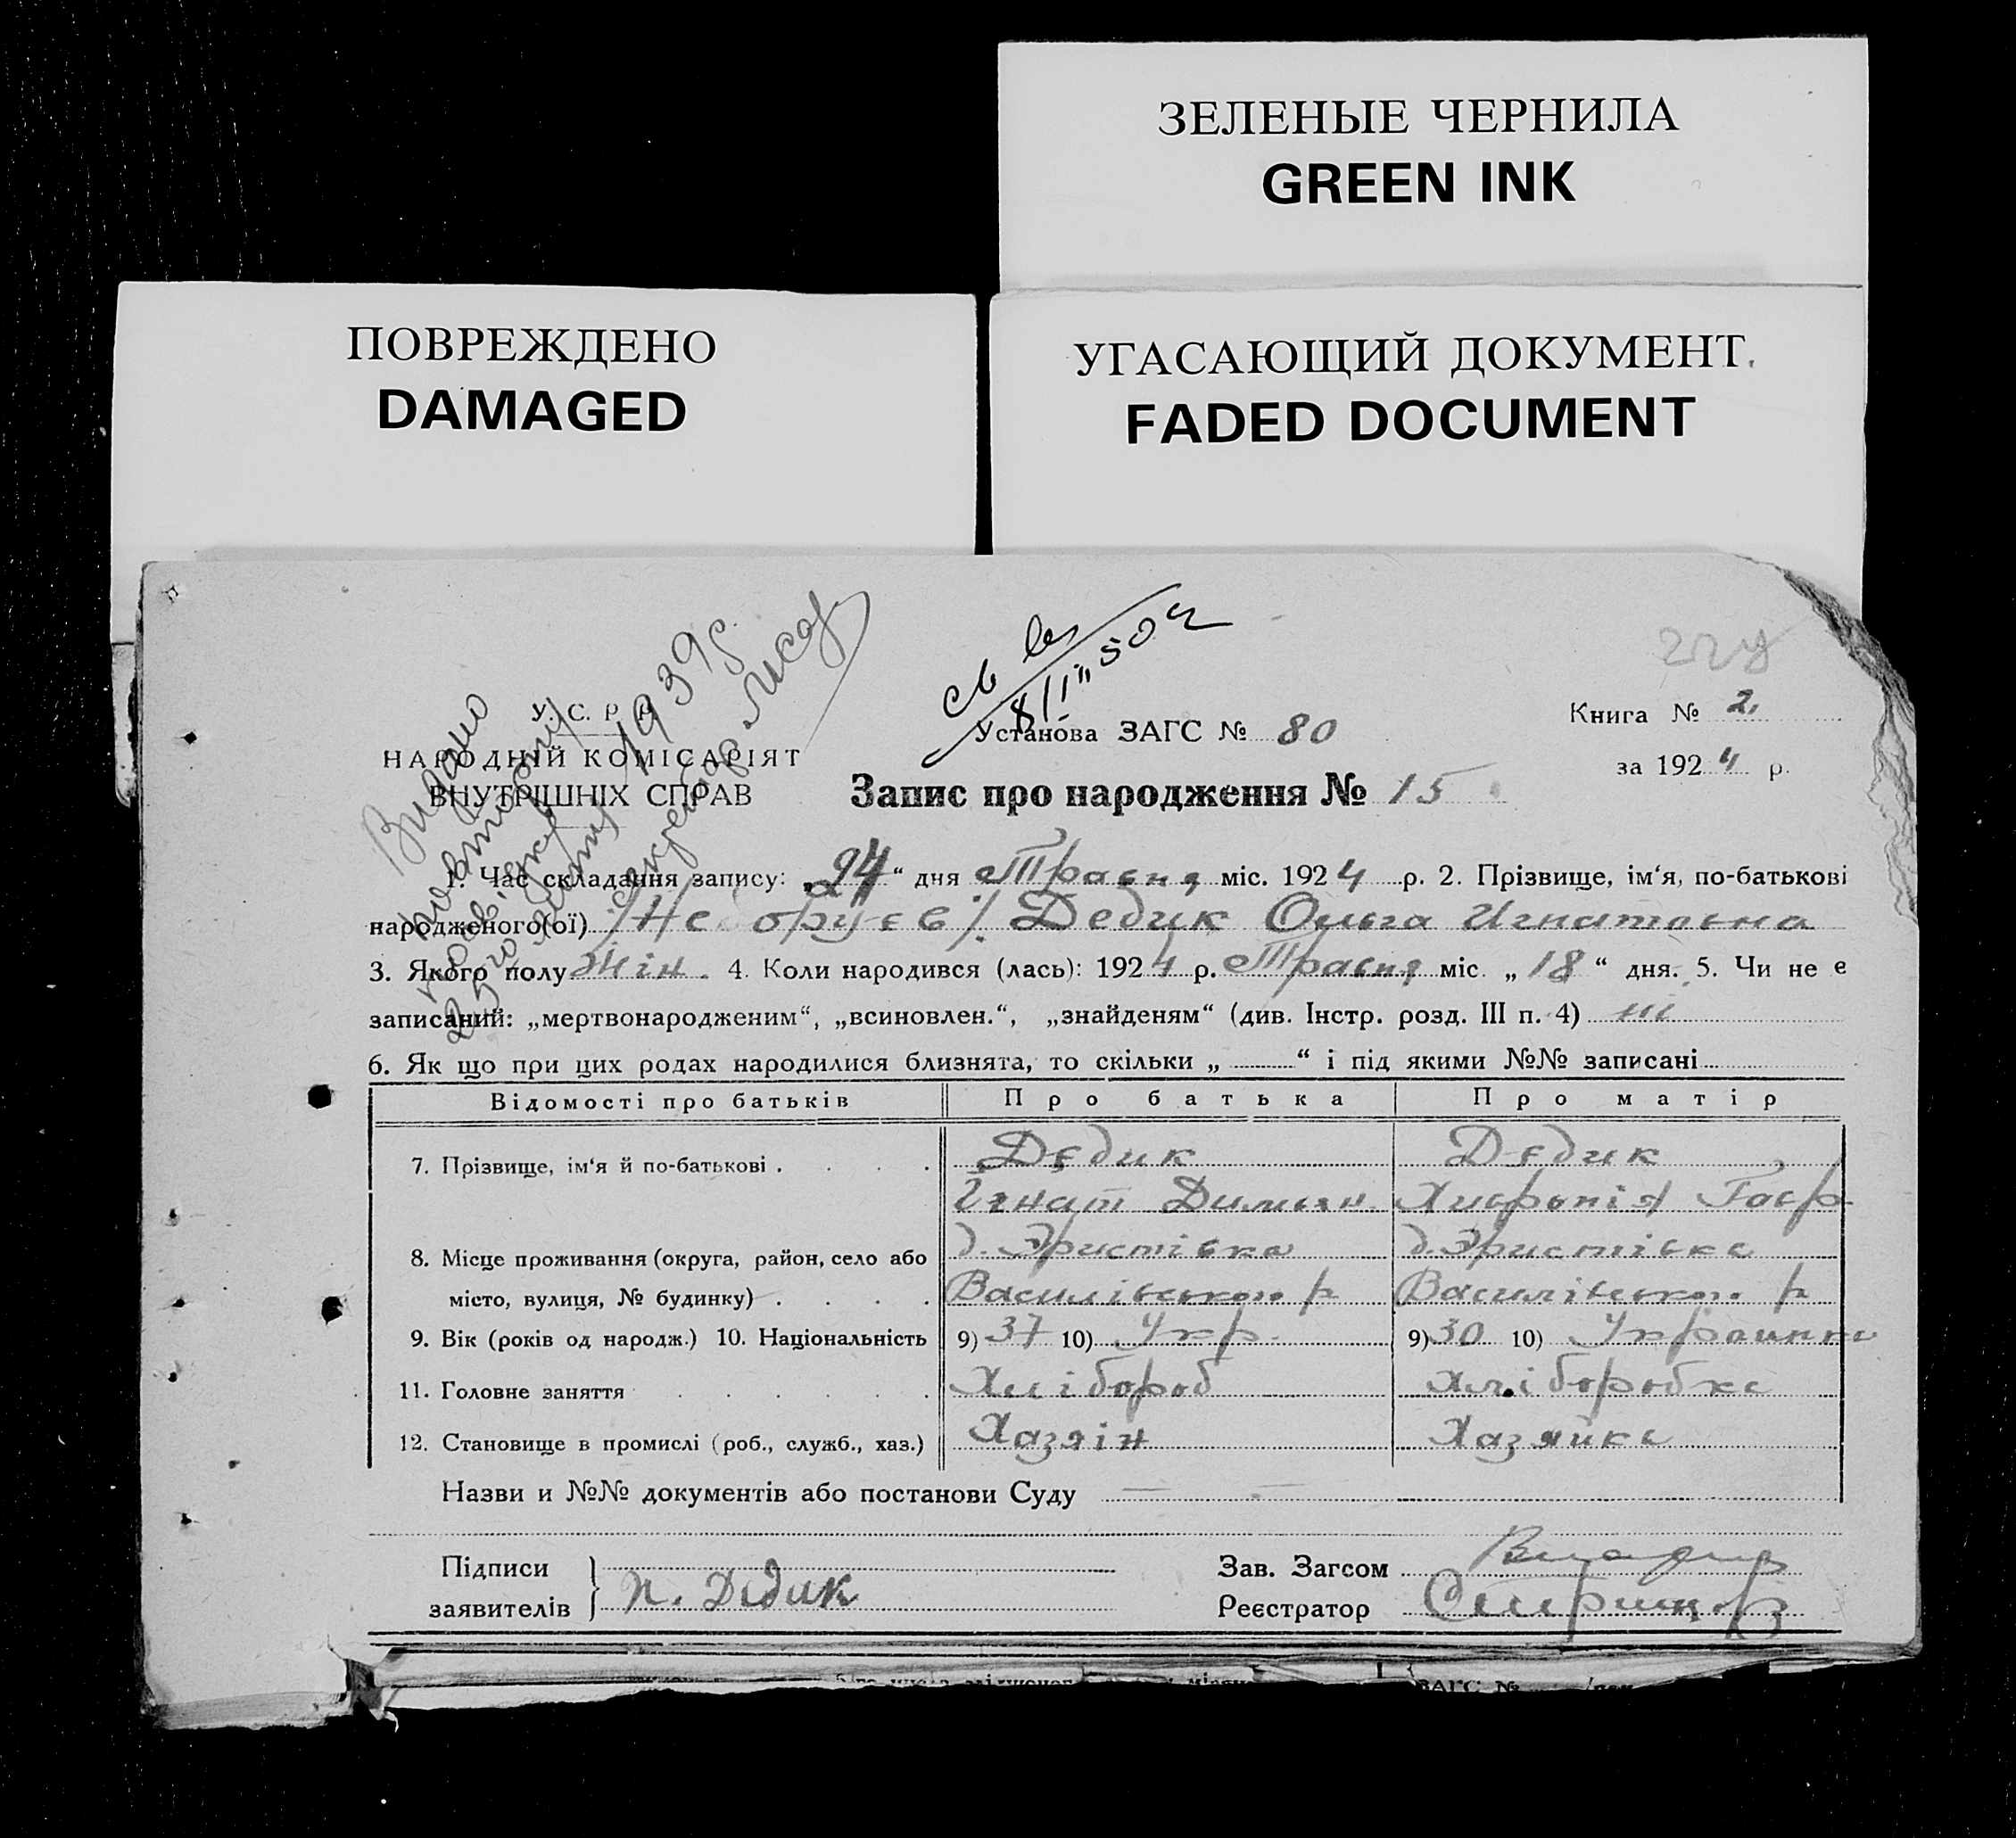 ЗЕЛЕНЫЕ ЧЕРНИЛА
GREEN INK
ПОВРЕЖДЕНО
DAMAGED
УГАСАЮЩИЙ ДОКУМЕНТ
FADED DOCUMENT
Видано
повторну
1939р
Секретар
У. С. Р. Р.
НАРОДНІЙ КОМІСАРІЯТ
ВНУТРІШНІХ СПРАВ
Установа ЗАГС № 80
Запис про народження № 15
Книга № 2
за 1924 р.
1. Час складання запису: „24“ дня Травня міс. 1924 р. 2. Прізвище, ім‘я, по-батькові
народженого(ої) Дедик Ольга Игнатовна
3. Якого полу Жін. 4. Коли народився (лась): 1924 р. Травня міс. „18“ дня. 5. Чи не є
записаний: „мертвонародженим“, „всиновлен.“, „знайденям“ (див. Інстр. розд. III п. 4) ні
6. Як що при цих родах народилися близнята, то скільки „ “ і під якими №№ записані
Відомості про батьків Про батька Про матір
7. Прізвище, ім‘я й по-батькові . . . . . Дєдик Дєдик
Ігнат Димян. Хивроні Гавр
8. Місце проживання (округа, район, село або д. Эристівка д. Эристівка
місто, вулиця, № будинку) . . . . Василівського р Василівського р
9. Вік (років од народж.) 10. Національність 9) 37 10) Укр. 9) 30 10) Украинка
11. Головне заняття . . . . . . Хлібороб Хліборобка
12. Становище в промислі (роб., служб., хаз.) Хазяін Хазяйка
Назви и №№ документів або постанови Суду — —
Підписи
заявителів } п. Дєдик
Зав. Загсом
Реєстратор